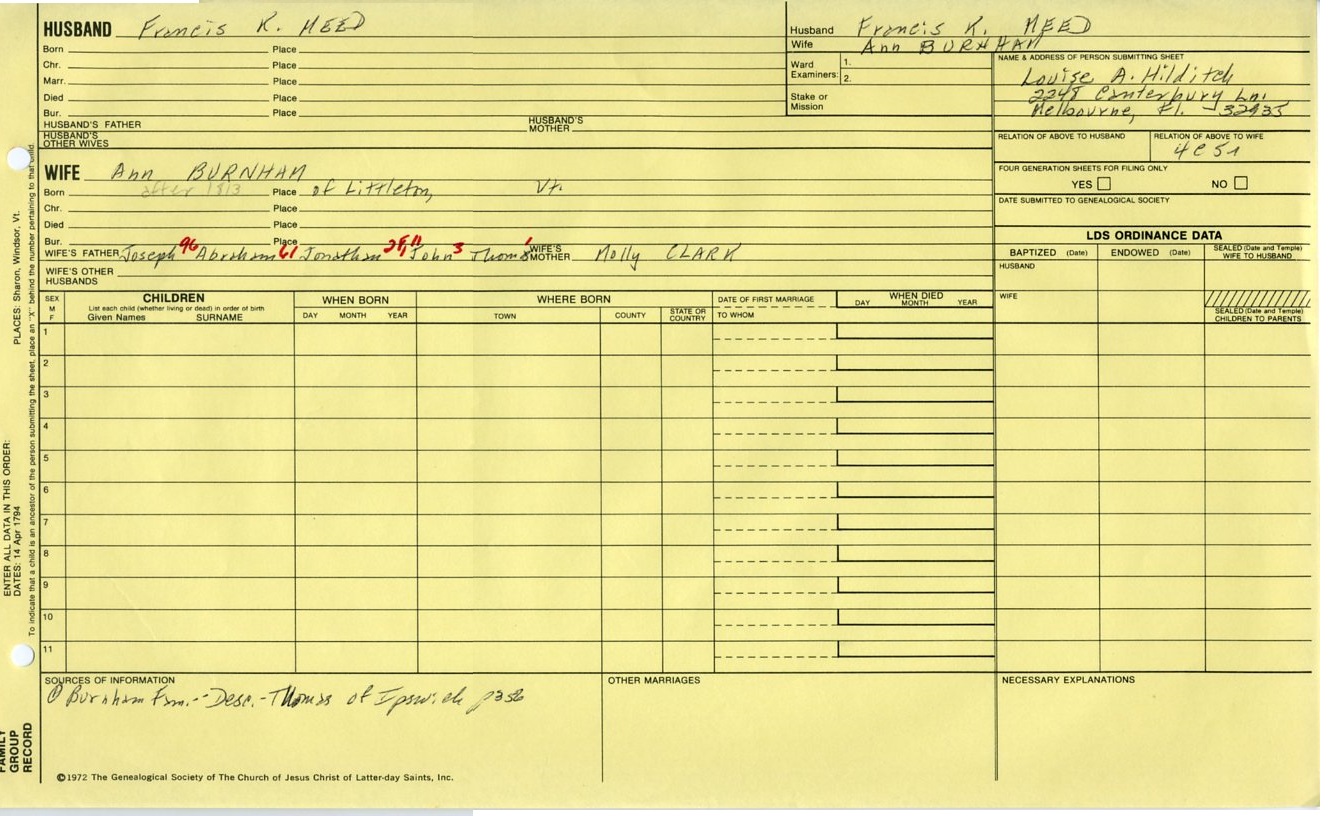 HUSBAND Francis K. MEED
Born Place
Chr. Place
Marr. Place
Died Place
Bur. Place
HUSBAND'S FATHER HUSBAND'S MOTHER
HUSBAND'S OTHER WIVES
Husband Francis K. MEED
Wife Ann BURNHAM
Ward Examiners: 1.
2.
Stake or Mission
NAME & ADDRESS OF PERSON SUBMITTING SHEET
Louise A. Hilditch
2248 Canterbury Ln.
Melbourne, Fl. 32935
RELATION OF ABOVE TO HUSBAND RELATION OF ABOVE TO WIFE
4C5R
FOUR GENERATION SHEETS FOR FILING ONLY
YES NO
DATE SUBMITTED TO GENEALOGICAL SOCIETY
WIFE Ann BURNHAM
Born after 1813 Place of Littleton, Vt.
Chr. Place
Died Place
Bur. Place
WIFE'S FATHER Joseph 96 Abraham 61 Jonathan John 3 Thomas 1 WIFE'S MOTHER Molly CLARK
WIFE'S OTHER HUSBANDS
LDS ORDINANCE DATA
BAPTIZED (Date) ENDOWED (Date) SEALED (Date and Temple) WIFE TO HUSBAND
HUSBAND
WIFE
SEALED (Date and Temple) CHILDREN TO PARENTS
SEX M F
CHILDREN
List each child (whether living or dead) in order of birth
Given Names SURNAME
WHEN BORN
DAY MONTH YEAR
WHERE BORN
TOWN COUNTY STATE OR COUNTRY
DATE OF FIRST MARRIAGE
TO WHOM
WHEN DIED
DAY MONTH YEAR
1
2
3
4
5
6
7
8
9
10
11
SOURCES OF INFORMATION
① Burnham Fam.-Desc.-Thomas of Ipswich p356
OTHER MARRIAGES
NECESSARY EXPLANATIONS
©1972 The Genealogical Society of The Church of Jesus Christ of Latter-day Saints, Inc.
FAMILY GROUP RECORD
ENTER ALL DATA IN THIS ORDER:
DATES: 14 Apr 1794 PLACES: Sharon, Windsor, Vt.
To indicate that a child is an ancestor of the person submitting the sheet, place an "X" behind the number pertaining to that child.